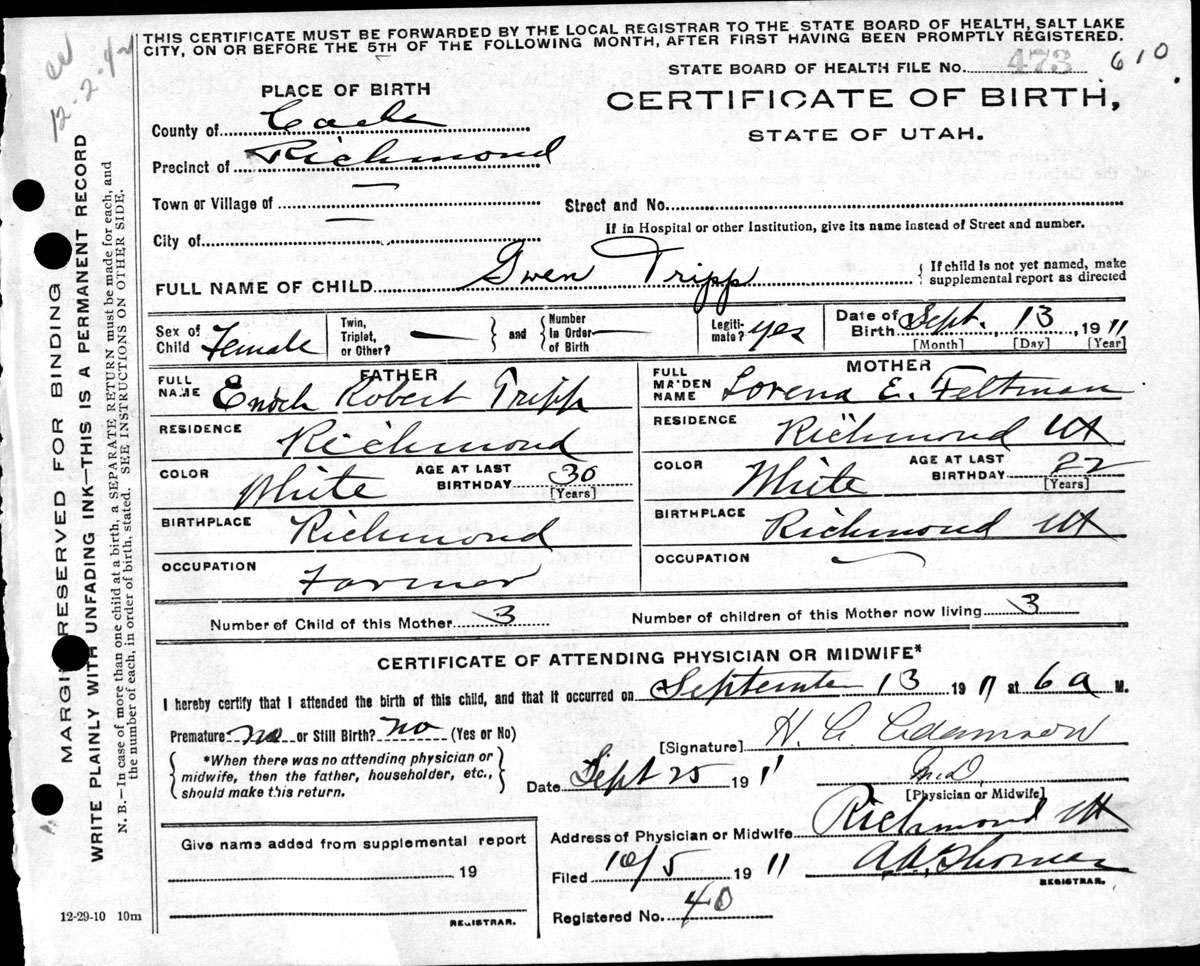 THIS CERTIFICATE MUST BE FORWARDED BY THE LOCAL REGISTRAR TO THE STATE BOARD OF HEALTH, SALT LAKE
CITY, ON OR BEFORE THE 5TH OF THE FOLLOWING MONTH, AFTER FIRST HAVING BEEN PROMPTLY REGISTERED.
12-2-42
STATE BOARD OF HEALTH FILE No. 473 610
CERTIFICATE OF BIRTH,
STATE OF UTAH.
PLACE OF BIRTH
County of Cache
Precinct of Richmond
Town or Village of —
Street and No.
City of —
If in Hospital or other Institution, give its name instead of Street and number.
FULL NAME OF CHILD Gwen Tripp
{ If child is not yet named, make
supplemental report as directed
Sex of Child Female
Twin, Triplet, or Other? — } and { Number in Order of Birth —
Legiti-mate? yes
Date of Birth Sept. 13, 1911
[Month] [Day] [Year]
FATHER
FULL NAME Enoch Robert Tripp
RESIDENCE Richmond
COLOR White AGE AT LAST BIRTHDAY 30
[Years]
BIRTHPLACE Richmond
OCCUPATION Farmer
MOTHER
FULL MAIDEN NAME Lorena E. Feltman
RESIDENCE Richmond Ut
COLOR White AGE AT LAST BIRTHDAY 22
[Years]
BIRTHPLACE Richmond Ut
OCCUPATION —
Number of Child of this Mother 3
Number of children of this Mother now living 3
CERTIFICATE OF ATTENDING PHYSICIAN OR MIDWIFE*
I hereby certify that I attended the birth of this child, and that it occurred on September 13 1911 at 6 a M.
Premature no or Still Birth? no (Yes or No)
{ *When there was no attending physician or
midwife, then the father, householder, etc.,
should make this return. }
[Signature] H. G. Adamson
Date Sept 25 1911 M.D.
[Physician or Midwife]
Address of Physician or Midwife Richmond Ut
Filed 10/5 1911 A.A. Thomas
REGISTRAR.
Registered No. 40
Give name added from supplemental report
19
REGISTRAR.
12-29-10 10m
MARGIN RESERVED FOR BINDING
WRITE PLAINLY WITH UNFADING INK—THIS IS A PERMANENT RECORD
N. B.—In case of more than one child at a birth, a SEPARATE RETURN must be made for each, and
the number of each, in order of birth, stated. SEE INSTRUCTIONS ON OTHER SIDE.